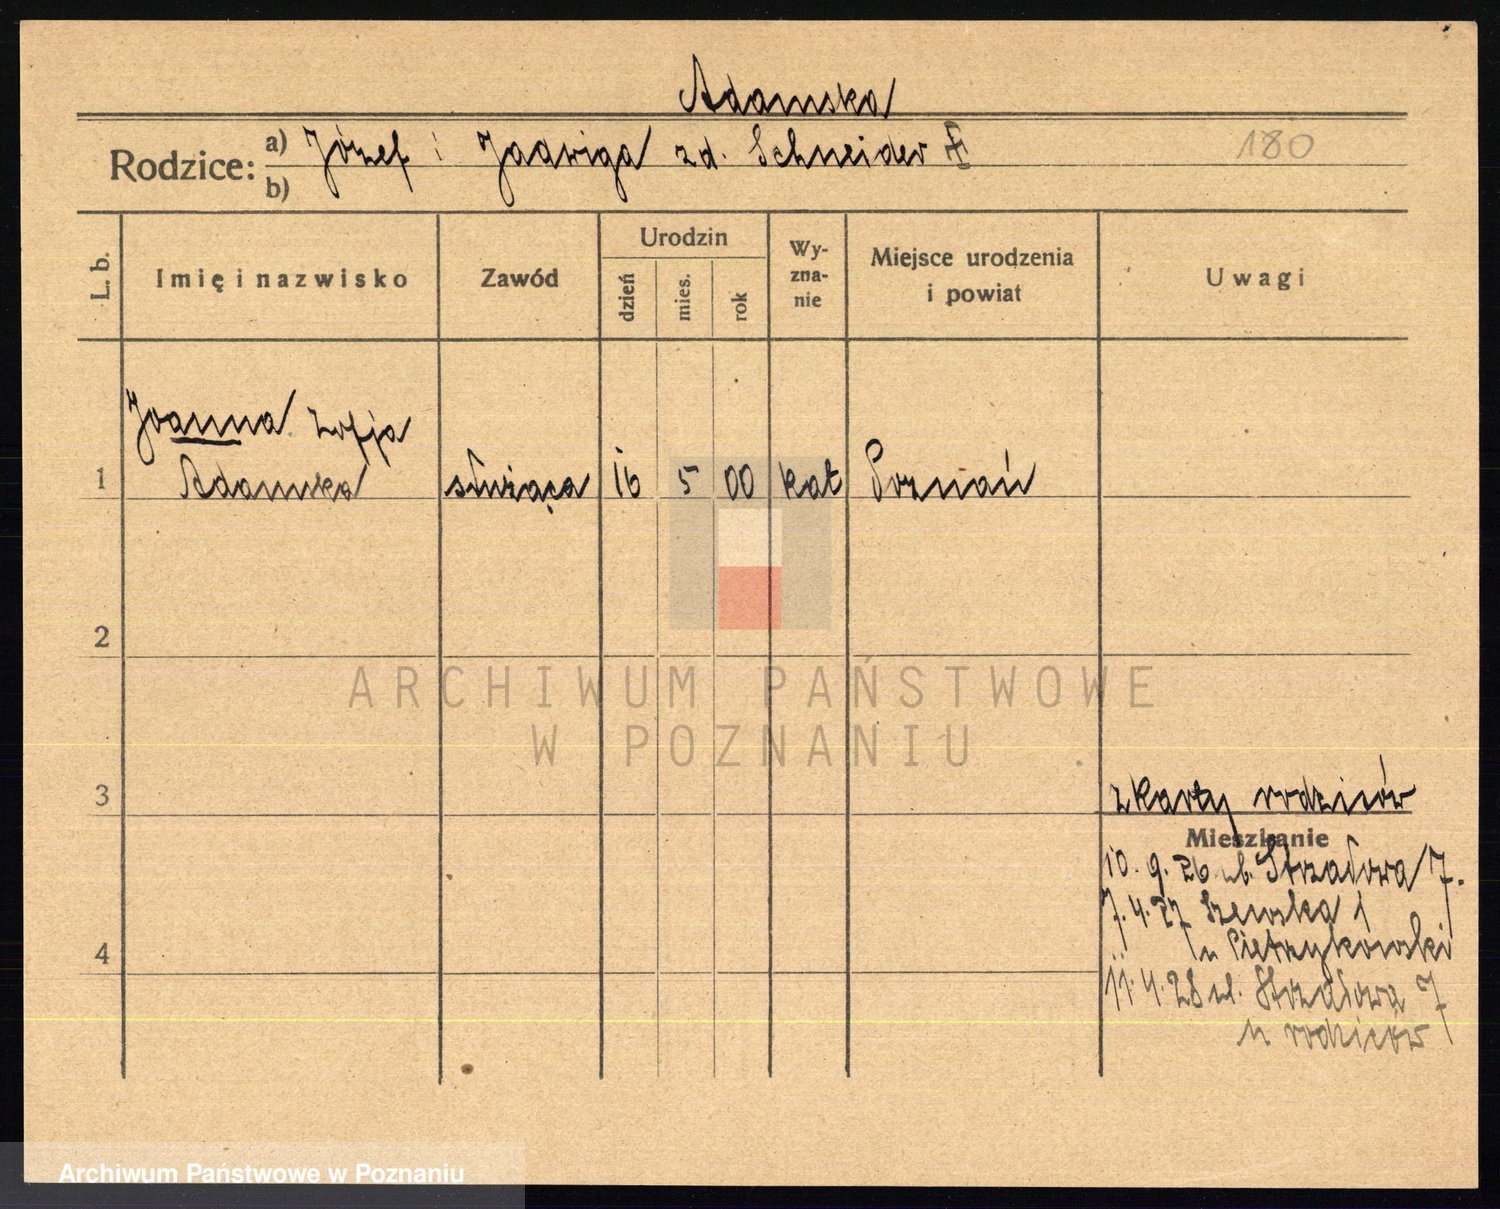 Adamska
Rodzice: a) Józef i Jadwiga zd. Schneider
b)
180
L. b.
Imię i nazwisko
Zawód
Urodzin
dzień
mies.
rok
Wy-
zna-
nie
Miejsce urodzenia
i powiat
Uwagi
Joanna Zofja
1 Adamska służąca 16 5 00 kat Poznań
2
ARCHIWUM PAŃSTWOWE
W POZNANIU
3
z karty rodziców
Mieszkanie
10. 9. 26 ul. Strzałowa 7.
7. 4. 27 Szewska 1
u Pietrzykowski
4
11. 4. 28 ul. Strzałowa 7
u rodziców
Archiwum Państwowe w Poznaniu